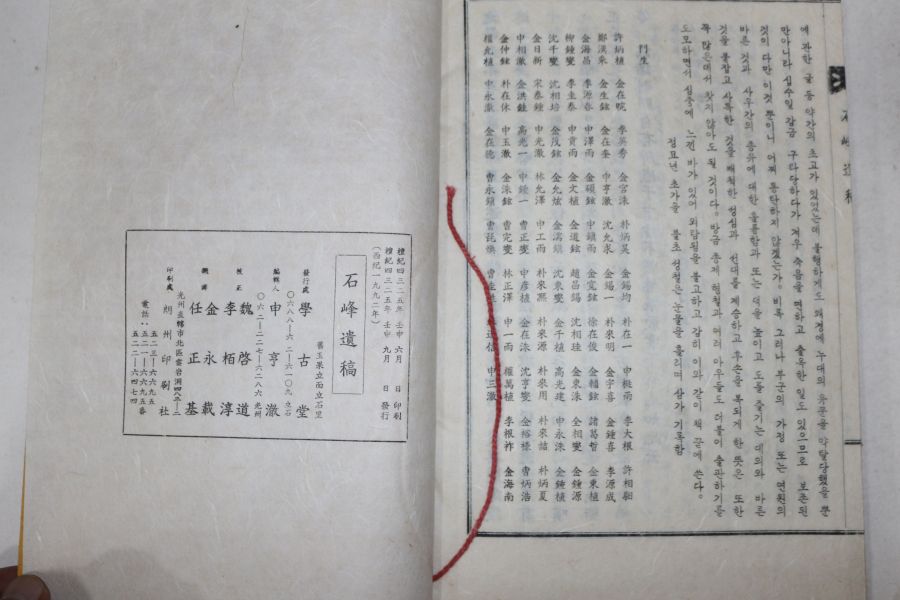 石峰遺稿
에 관한 글 등 약간의 초고가 있었는데 불행하게도 왜경에 누대의 유문을 약탈당했을 뿐
만아니라 십수일 감금 구타당하다가 겨우 죽음을 면하고 출옥한 일도 있으므로 보존된
것이 다만 이것 뿐이니 어찌 통탄하지 않겠는가. 비록 그러나 부군의 가정 또는 연원의
바른 것과 사우간의 종유에 대한 훌륭함과 또는 덕을 높이고 도를 즐기는 대의와 바른
것을 붙잡고 사특한 것을 배척한 정성과 선대를 계승하고 후손을 복되게 한 뜻은 또한
꼭 많은데서 찾지 않아도 될 것이다. 방금 종제 형철과 여러 아우들도 더불어 출판하기를
도모하면서 심중에 느낀 바가 있어 외람됨을 불고하고 감히 이와 같이 책 끝에 쓴다.
정묘년 초가을 불초 성철은 눈물을 흘리며 삼가 기록함
門生
許炳植 李英秀 朴炳昊 金錫均 朴在一 申梃雨 李大根
鄭漢采 金生鉉 金在奎 申亨澈 沈允求 金錫一 朴來明 金宇喜 金鍾喜 李源成
金海昌 李源春 申澤雨 金碩鉉 申鎮雨 金寬鉉 徐在俊 金輔鉉 諸葛哲 金東植
柳鍾燮 李圭泰 金文植 金道鉉 趙昌錫 沈相珪 金東洙 全相燮 金鍾源
沈千燮 沈相培 金茂鉉 金允炫 沈東燮 金亨植 高光建 申永洙 金鍾植
金日新 宋泰鍾 申光澈 林允澤 申工雨 朴來熙 朴來用 朴炳夏
申相澈 金洪鉉 高光一 申鍾一 曺正燮 申彦植 金在洙 沈亨燮 曺炳浩
金仲鉉 朴在休 申玉澈 金洙鉉 曺完燮 林正澤 申一雨 權萬植 李根祚 金海南
權允植 申永澈 金在德 曺永鎭 申三澈
檀紀四三二五年 壬申 六月 日 印刷
檀紀四三二五年 壬申 九月 日 發行
(西紀一九九二年)
石峰遺稿
舊玉果立面立石里
發行處 學古堂
編輯人 申亨澈
校正 魏啓道
李栢淳
金永載
任正基
光州直轄市北區雲岩洞
印刷處 朗州印刷社
電話: